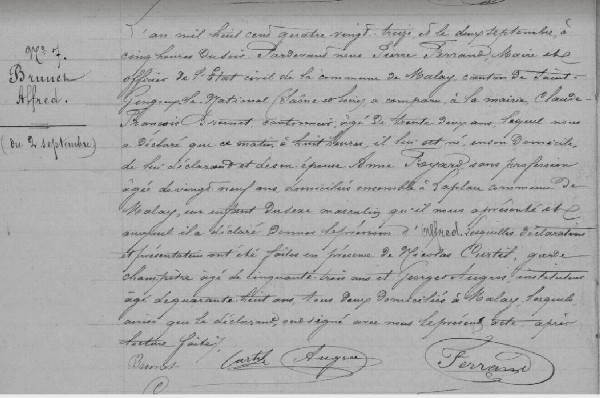 N° 7.
Brunet
Alfred.
(du 2 septembre)
L'an mil huit cent quatre-vingt-treize, et le deux septembre, à
cinq heures du soir Pardevant nous Pierre Ferrand, Maire et
officier de l'Etat civil de la commune de Malay canton de Saint-
Gengoux-le-National (Saône et Loire, a comparu, à la mairie, Claude-
François Brunet cantonnier, âgé de trente deux ans, lequel nous
a déclaré que ce matin, à huit heures, il lui est né, en son domicile,
de lui déclarant et de son épouse Anne Royard, sans profession
âgée de vingt neuf ans, domiciliés ensemble à Laplau commune de
Malay, un enfant du sexe masculin qu'il nous a présenté et
auquel il a déclaré donner le prénom d'Alfred, lesquelles déclarations
et présentation ont été faites en présence de Nicolas Curtil, garde
champêtre âgé de cinquante trois ans et Georges Augros, instituteur
âgé de quarante huit ans, tous deux domiciliés à Malay, lesquels
ainsi que le déclarant, ont signé avec nous le présent acte après
lecture faite.
Brunet Curtil Ferrand